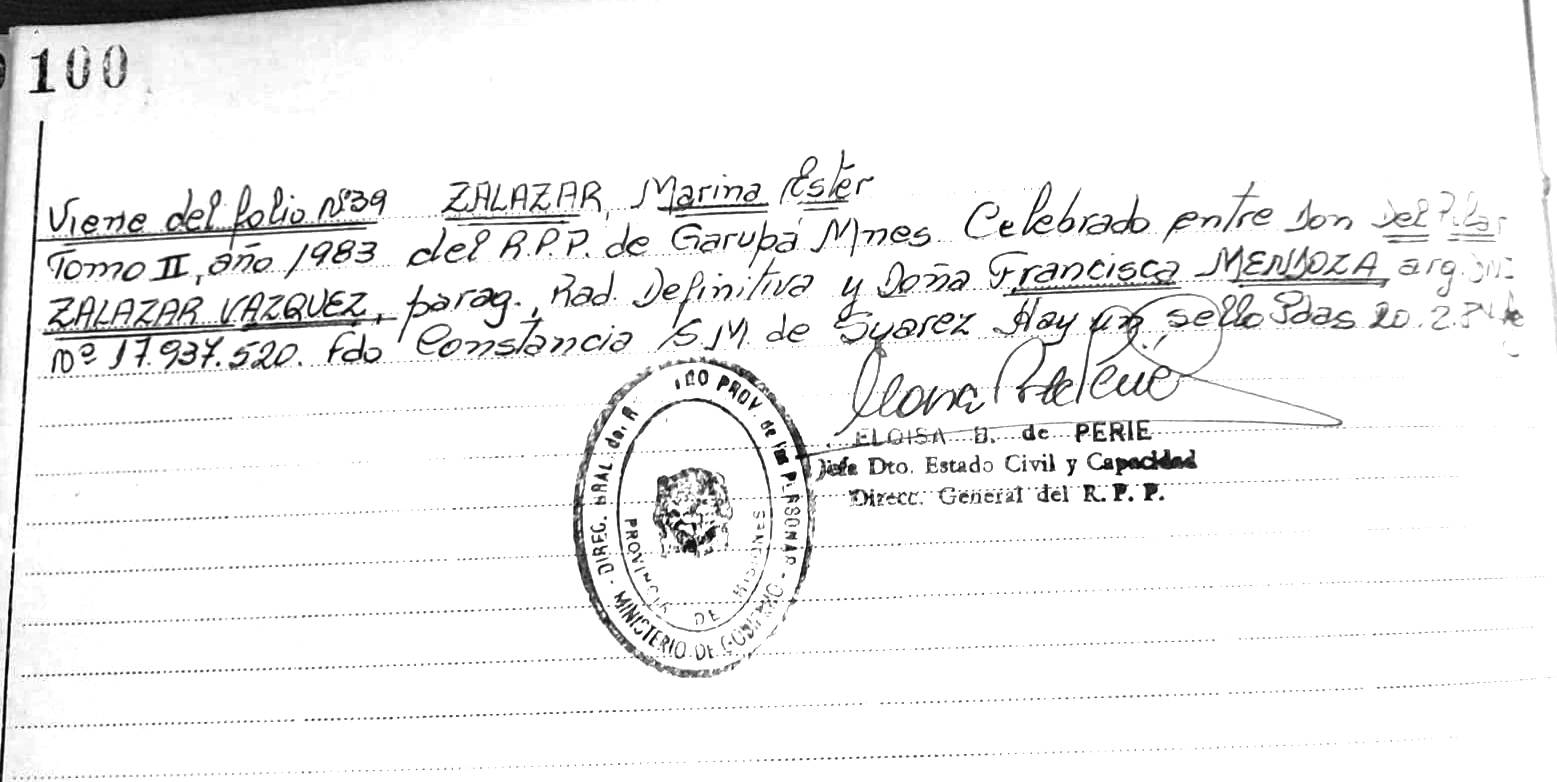 100
Viene del folio Nº39 ZALAZAR, Marina Ester
Tomo II, año 1983 del R.P.P. de Garupá Mnes. Celebrado entre Don Del Pilar
ZALAZAR VAZQUEZ, parag., Rad. Definitiva y Doña Francisca MENDOZA, arg. DNI
Nº 17.937.520. Fdo Constancia S.M. de Suarez Hay un sello Pdas 20.2.84
ELOISA B. de PERIE
Jefe Dto. Estado Civil y Capacidad
Direcc. General del R. P. P.
DIREC. GRAL. del R PROV. de las PERSONAS - MINISTERIO DE GOBIERNO -
PROVINCIA DE MISIONES